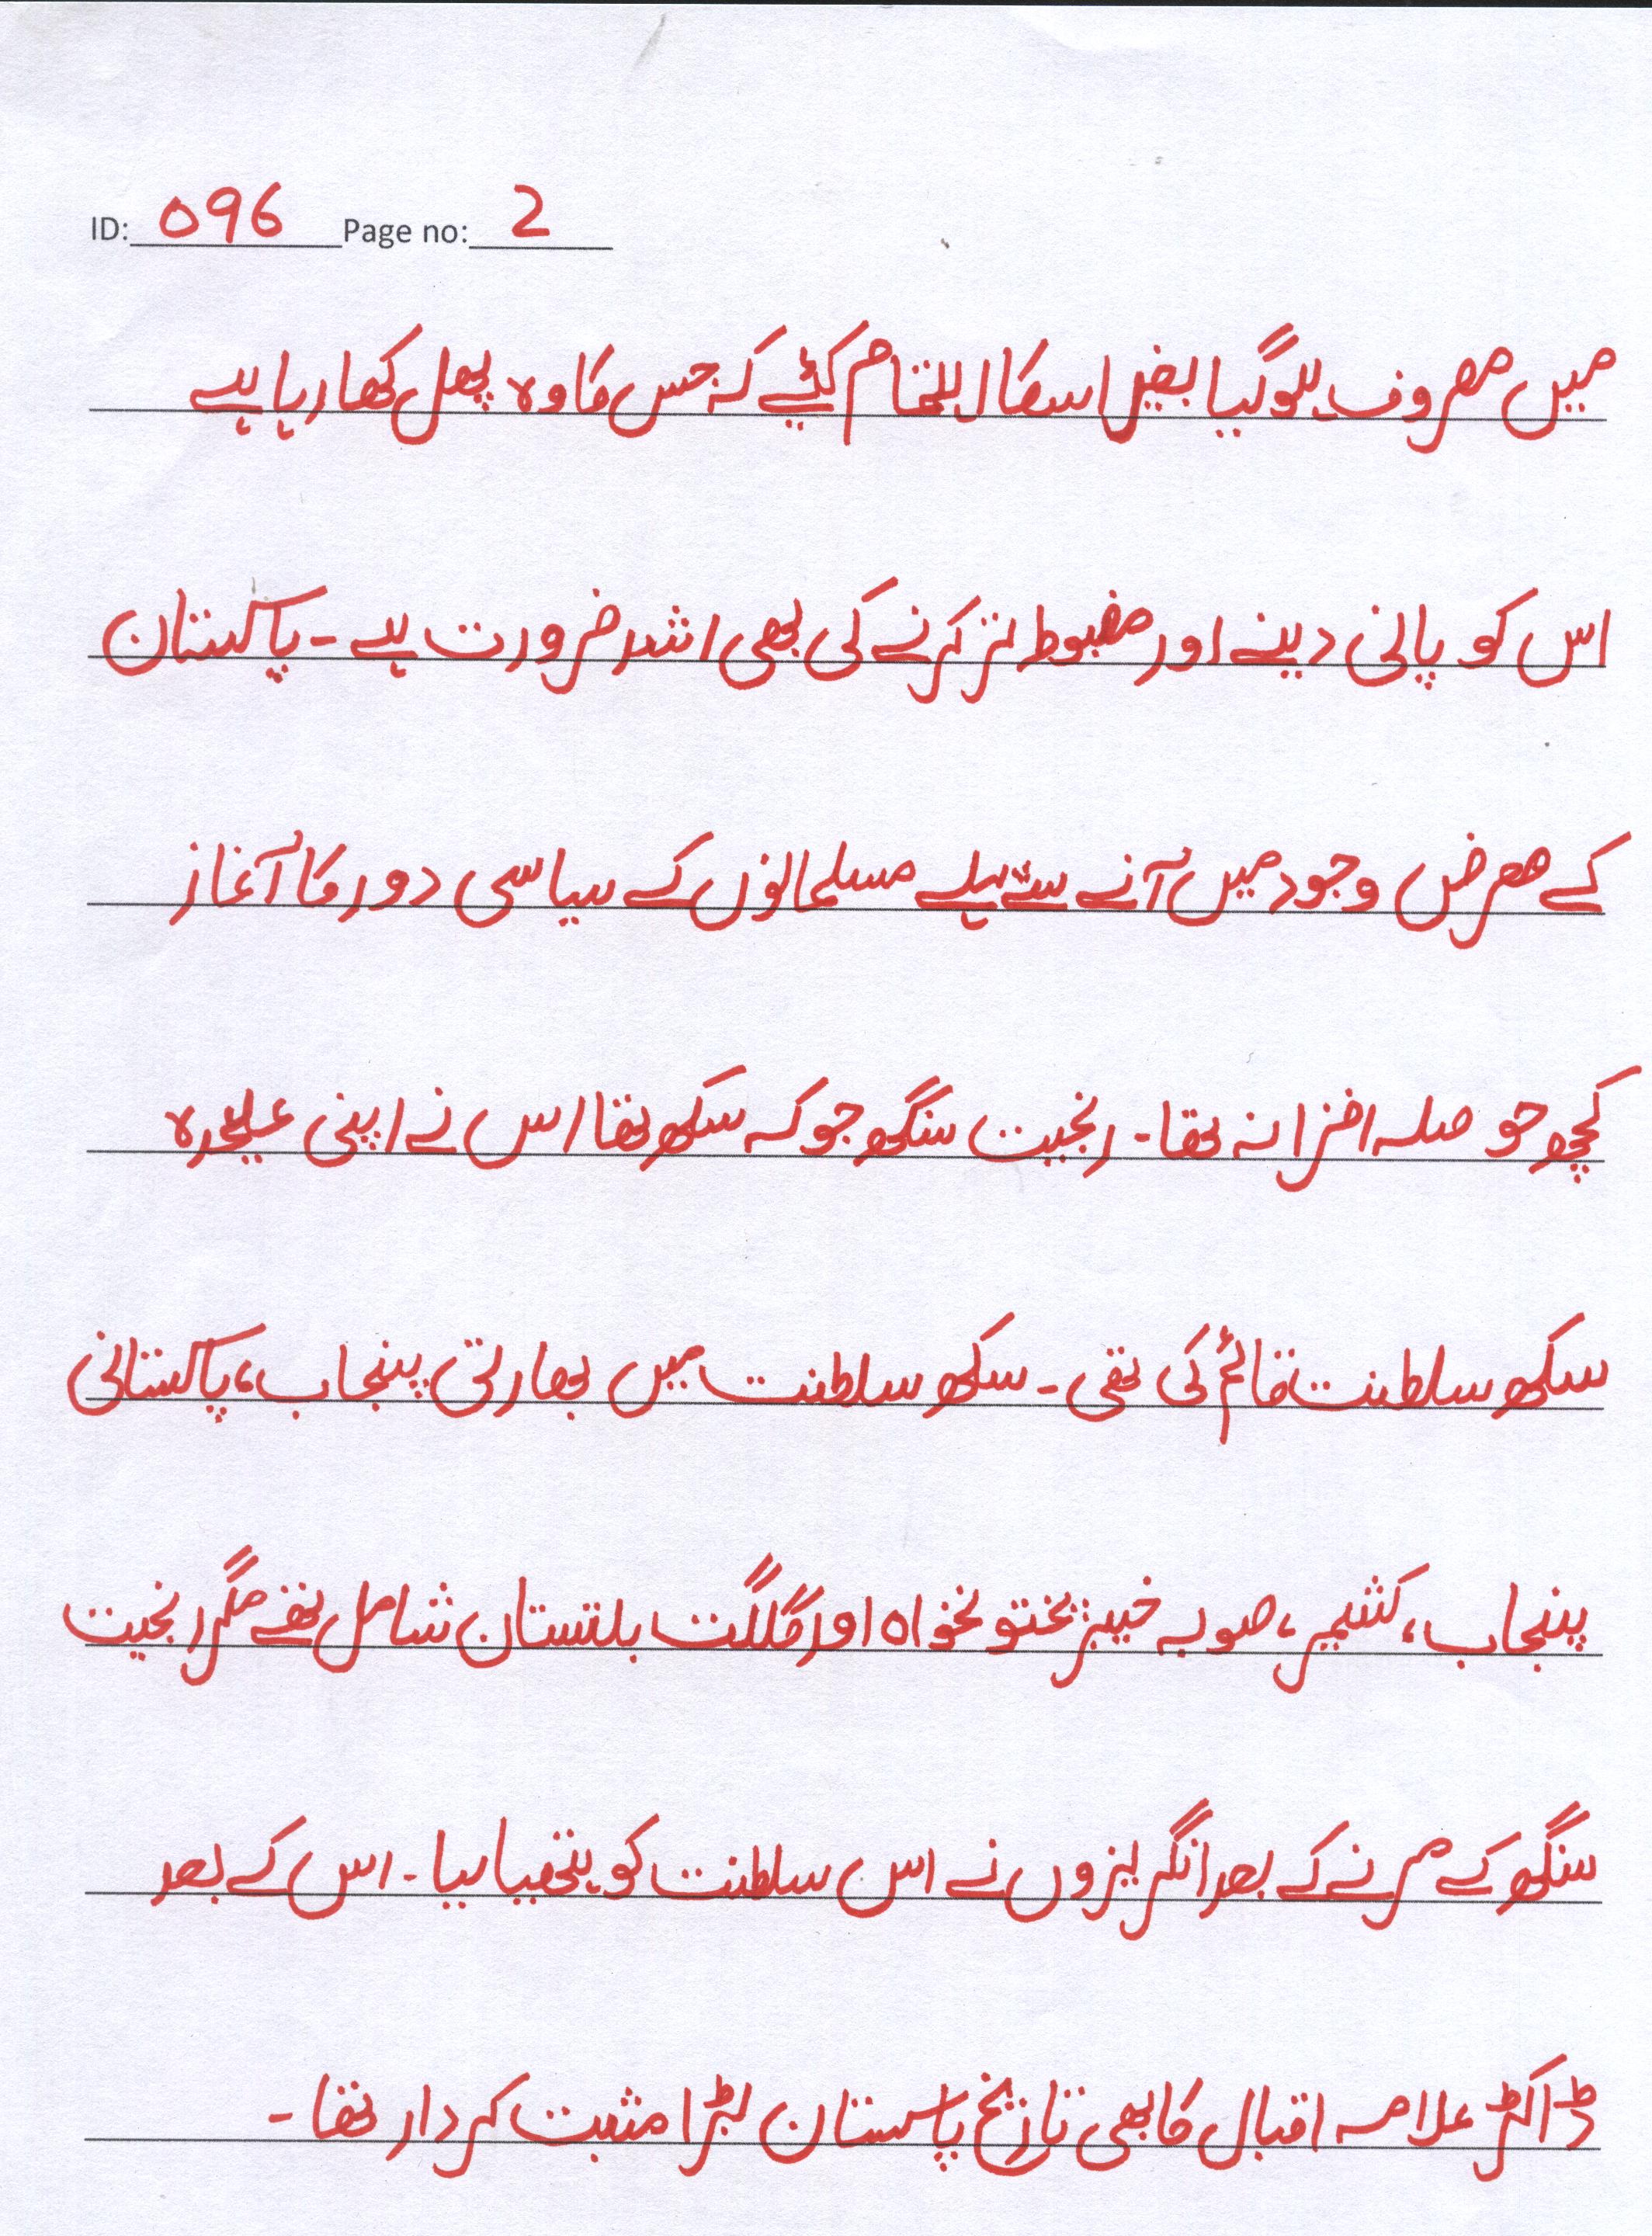 ID: 096 Page no: 2
میں مصروف ہوگیا بغیر اسکا اہتمام کئے کہ جس کا وہ پھل کھا رہا ہے
اس کو پانی دینے اور مضبوط تر کرنے کی بھی اشد ضرورت ہے ۔ پاکستان
کے معرض وجود میں آنے سے پہلے مسلمانوں کے سیاسی دور کا آغاز
کچھ حوصلہ افزا نہ تھا ۔ رنجیت سنگھ جو کہ سکھ تھا اس نے اپنی علیحدہ
سکھ سلطنت قائم کی تھی ۔ سکھ سلطنت میں بھارتی پنجاب، پاکستانی
پنجاب، کشمیر، صوبہ خیبر پختونخواہ اور گلگت بلتستان شامل تھے مگر رنجیت
سنگھ کے مرنے کے بعد انگریزوں نے اس سلطنت کو ہتھیا لیا ۔ اس کے بعد
ڈاکٹر علامہ اقبال کا بھی تاریخ پاکستان بڑا مثبت کردار تھا ۔